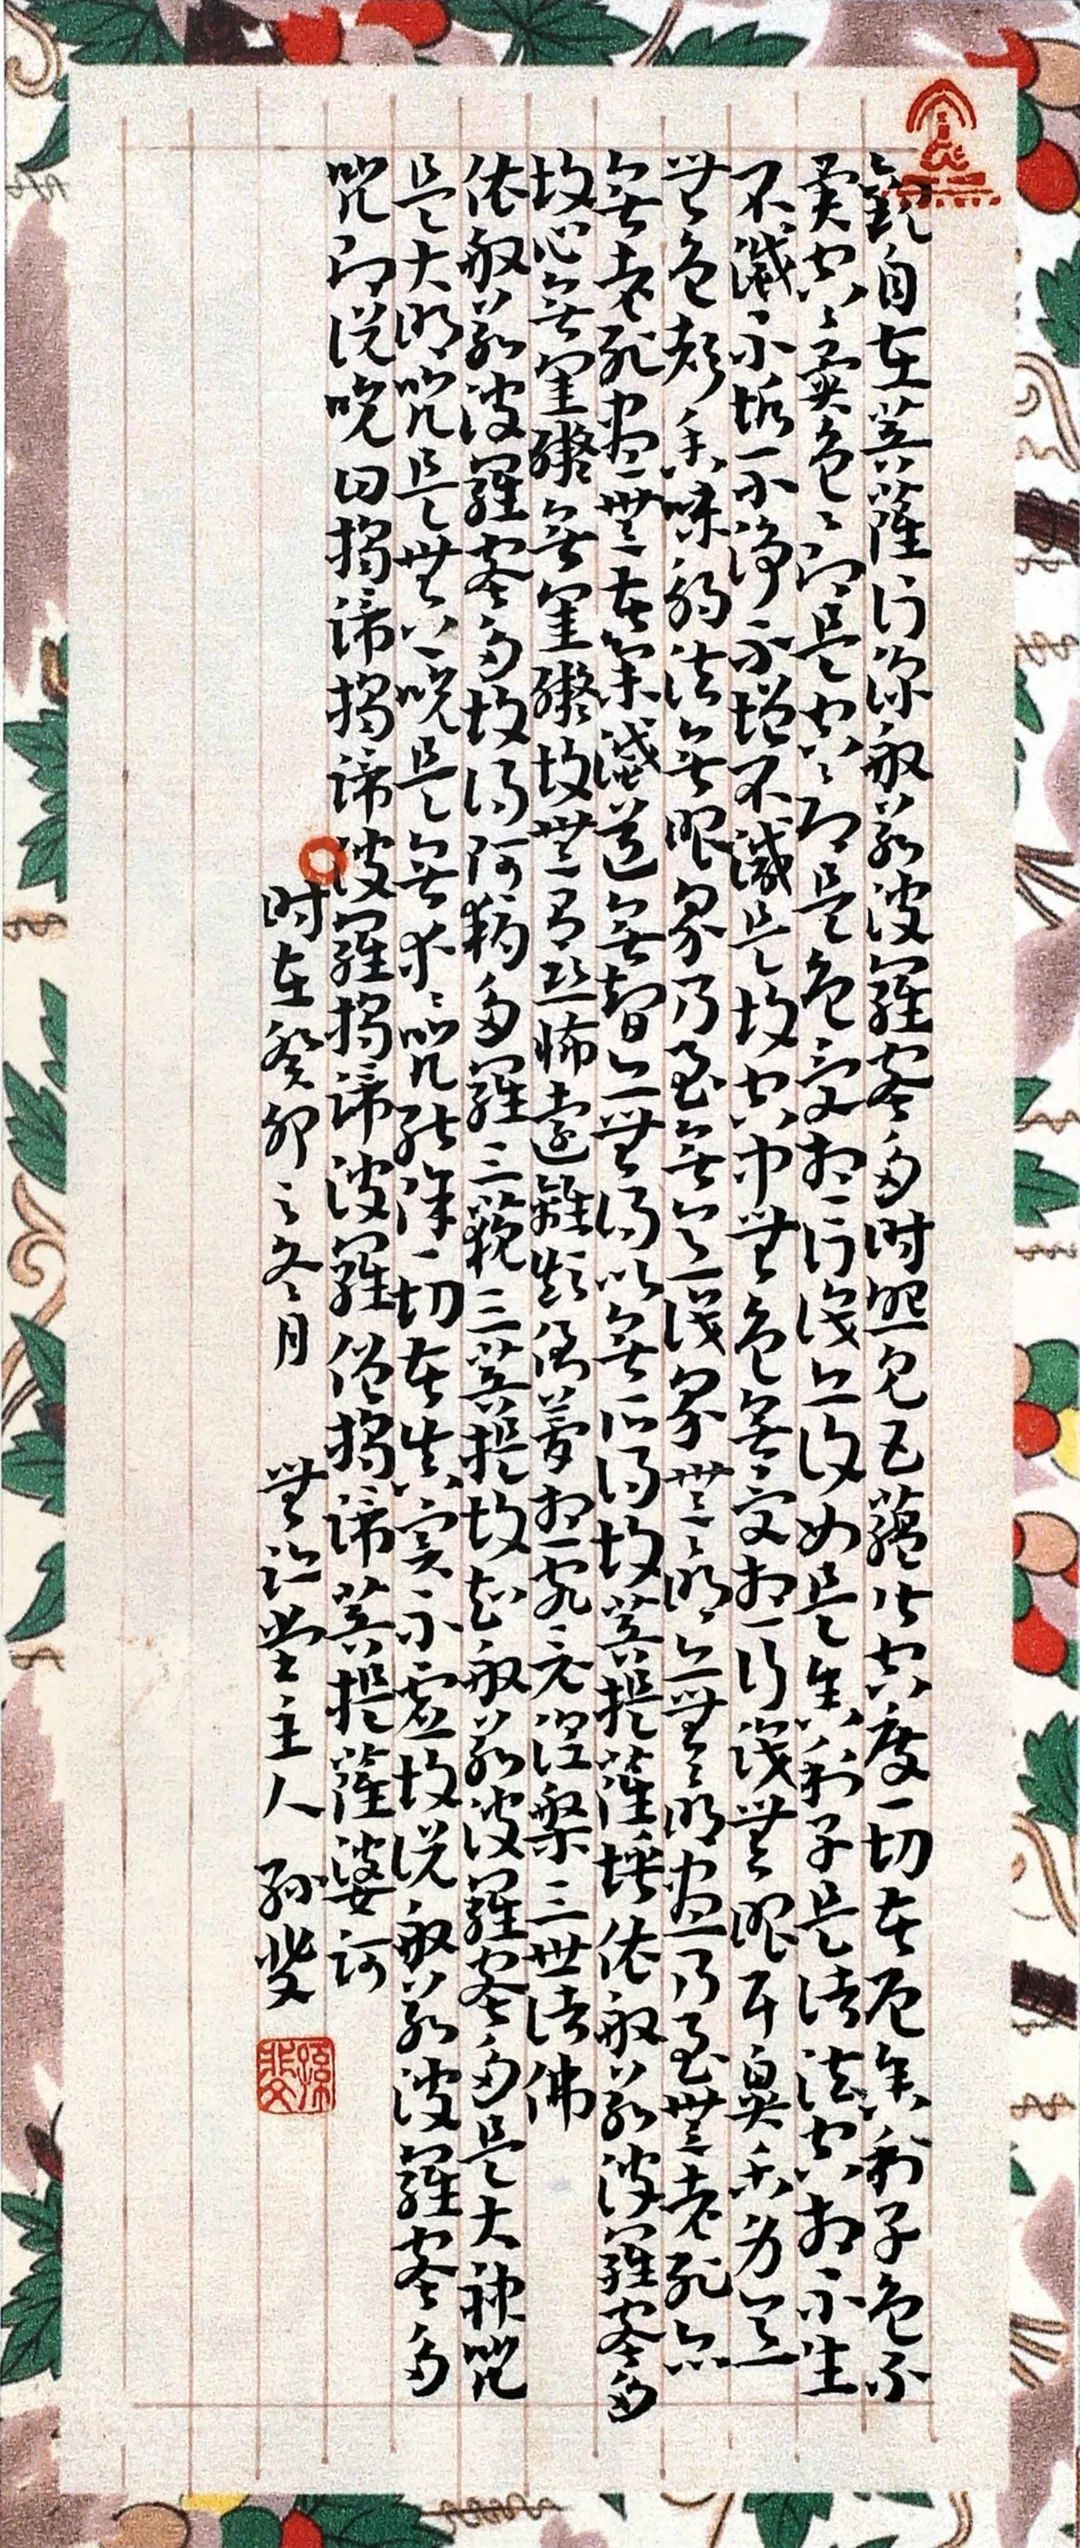 觀自在菩薩行深般若波羅蜜多時照見五蘊皆空度一切苦厄舍利子色不
異空空異色色即是空空即是色受想行識亦復如是舍利子是諸法空相不生
不滅不垢不淨不增不減是故空中無色無受想行識無眼耳鼻舌身意
無色聲香味觸法無眼界乃至無意識界無無明亦無無明盡乃至無老死亦
無老死盡無苦集滅道無智亦無得以無所得故菩提薩埵依般若波羅蜜多
故心無罣礙無罣礙故無有恐怖遠離顛倒夢想究竟涅槃三世諸佛
依般若波羅蜜多故得阿耨多羅三藐三菩提故知般若波羅蜜多是大神咒
是大明咒是無上咒是無等等咒能除一切苦真實不虛故說般若波羅蜜多
咒即說咒曰揭諦揭諦波羅揭諦波羅僧揭諦菩提薩婆訶
时在癸卯之冬月 無訟堂主人 孙斐
孫斐